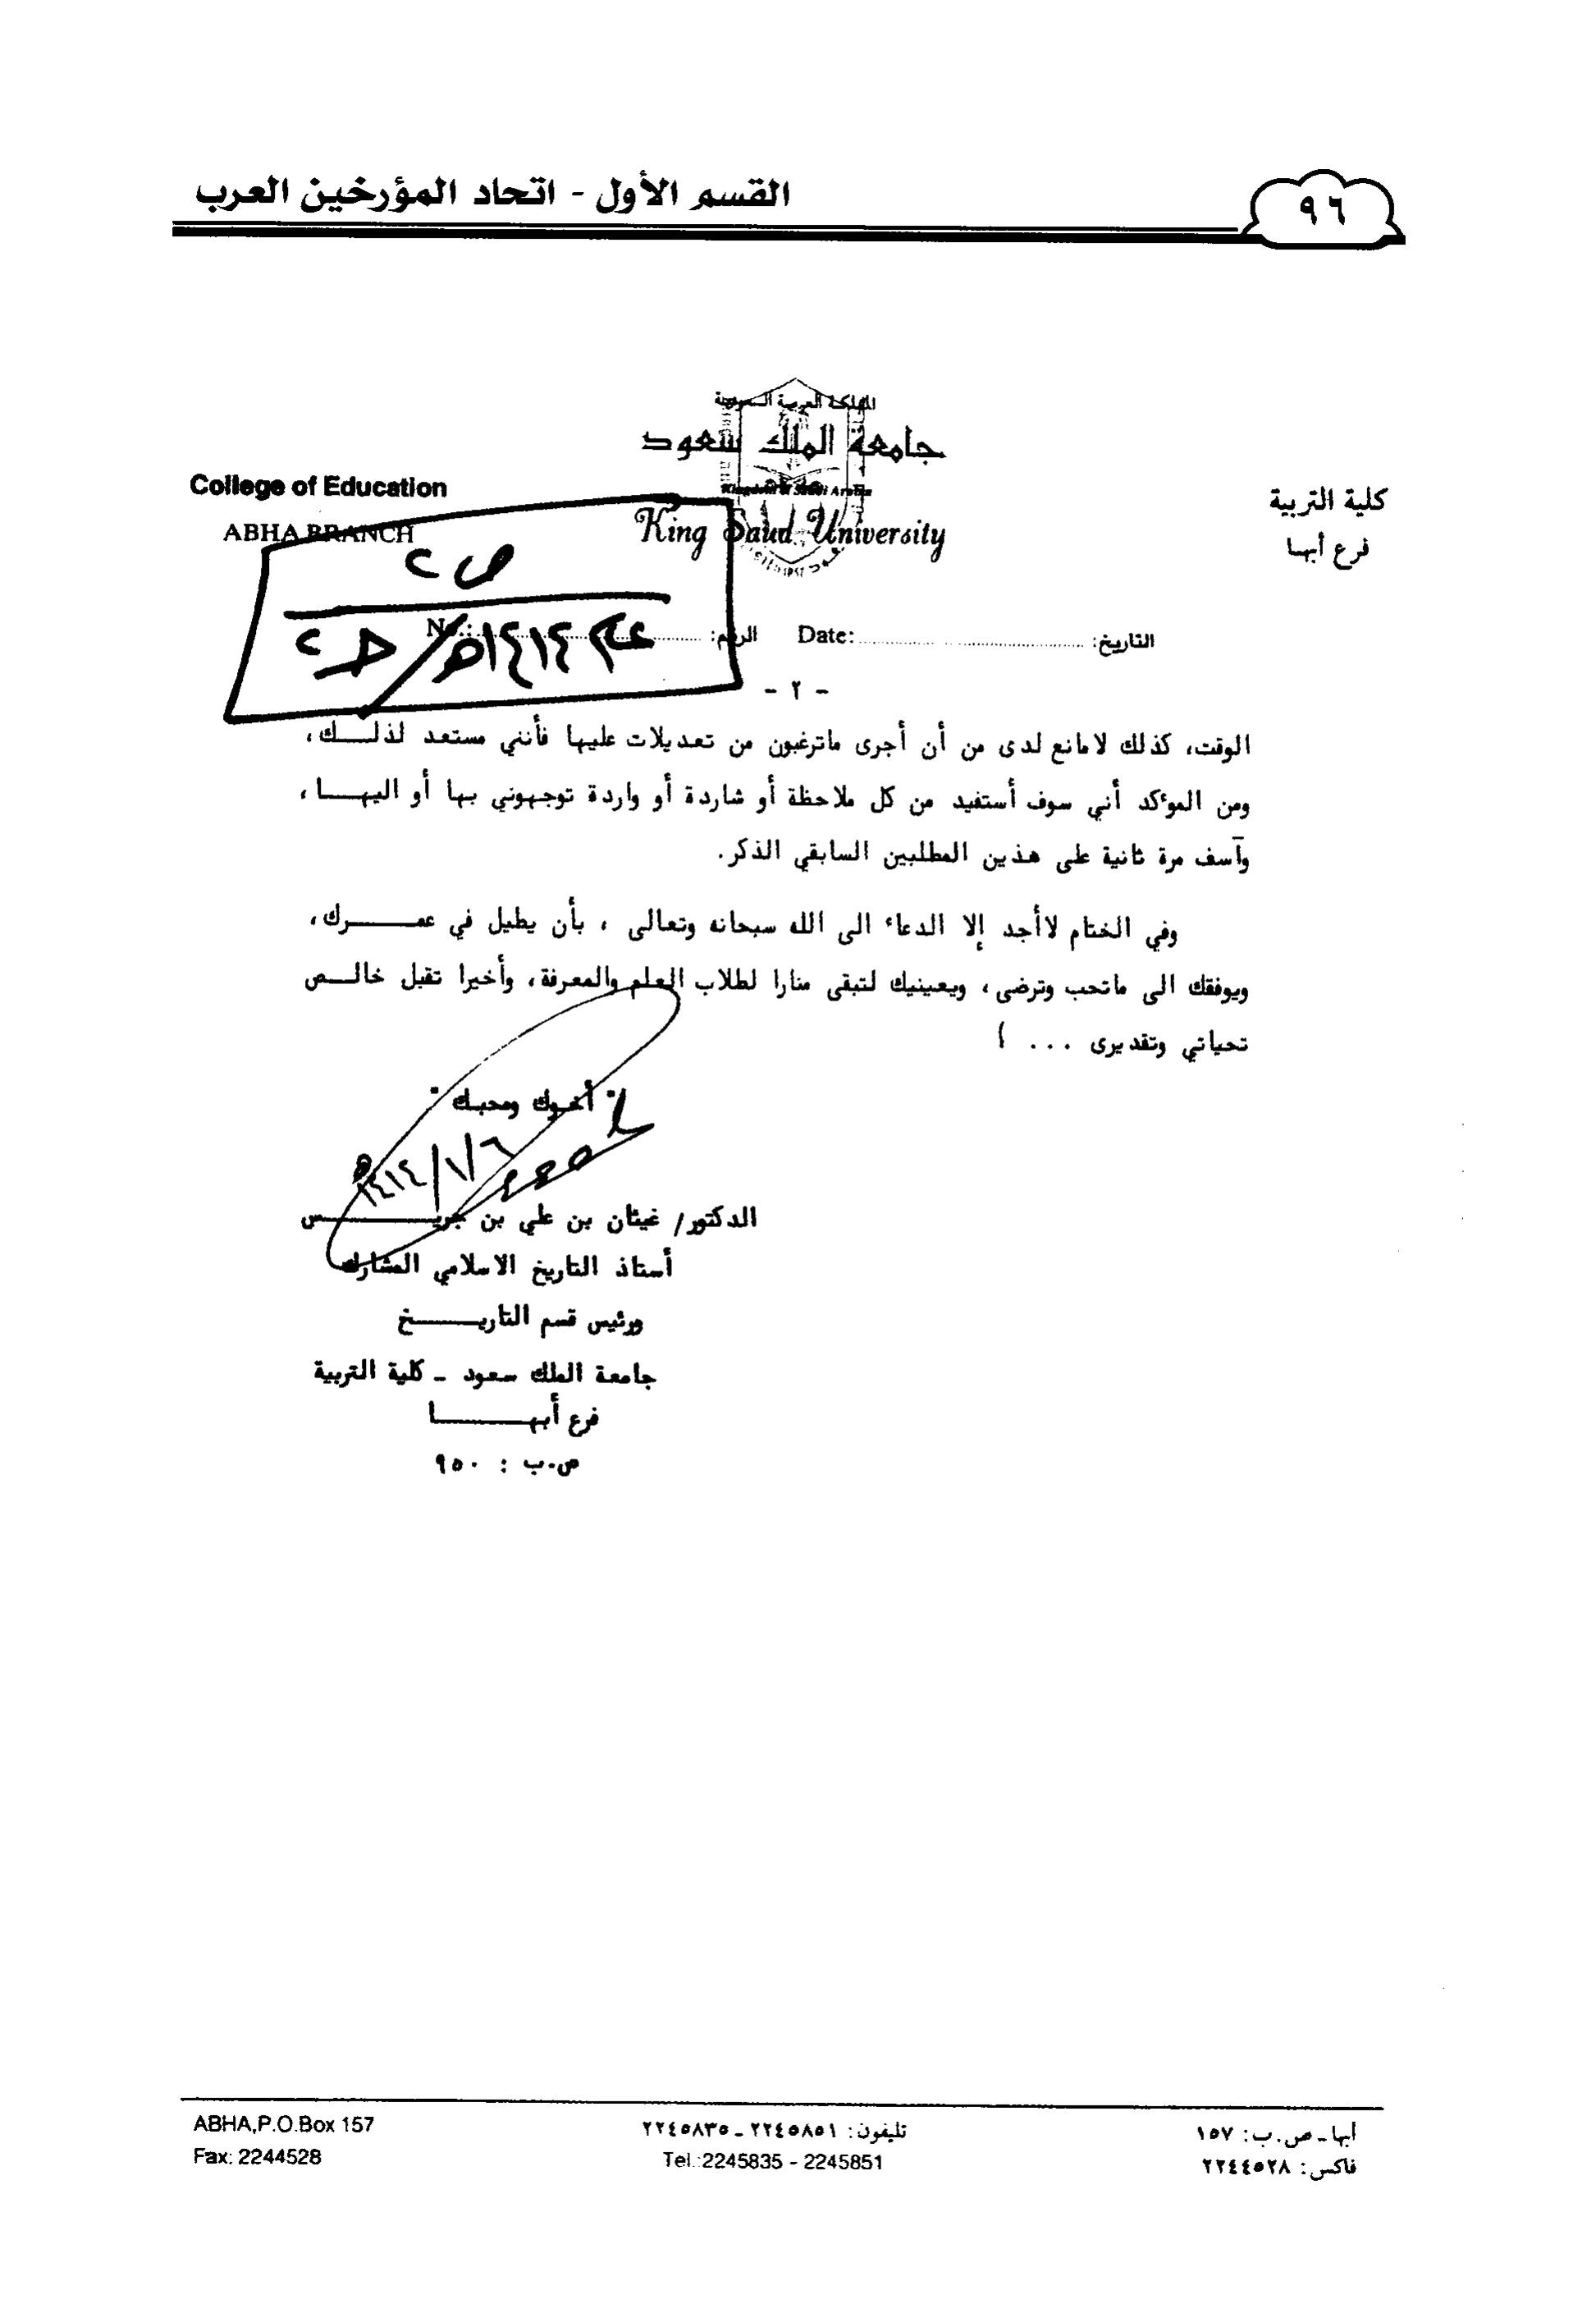 القسم الأول - اتحاد المؤرخين العرب
٩٦
المملكة العربية السعودية
جامعة الملك سعود
Kingdom of Saudi Arabia
King Saud University
College of Education
ABHA BRANCH
كلية التربية
فرع أبها
ص ٢
١٤١٤هـ /
No.: الرقم:
Date: التاريخ:
- ٢ -
الوقت، كذلك لامانع لدى من أن أجرى ماترغبون من تعديلات عليها فأنني مستعد لذلــــك،
ومن المؤكد أني سوف أستفيد من كل ملاحظة أو شاردة أو واردة توجهوني بها أو اليهــــا،
وآسف مرة ثانية على هذين المطلبين السابقي الذكر.
وفي الختام لاأجد إلا الدعاء الى الله سبحانه وتعالى ، بأن يطيل في عمــــــرك،
ويوفقك الى ماتحب وترضى، ويعينيك لتبقى منارا لطلاب العلم والمعرفة، وأخيرا تقبل خالــص
تحياتي وتقديرى ...
أخوك ومحبك
١٤١٤/١/٦هـ
الدكتور/ غيثان بن علي بن جريــــــــس
أستاذ التاريخ الاسلامي المشارك
ورئيس قسم التاريــــــخ
جامعة الملك سعود - كلية التربية
فرع أبهــــــــا
ص.ب : ٩٥٠
ABHA,P.O.Box 157
Fax: 2244528
تليفون: ٢٢٤٥٨٥١ - ٢٢٤٥٨٣٥
Tel.:2245835 - 2245851
أبها - ص.ب: ١٥٧
فاكس: ٢٢٤٤٥٢٨